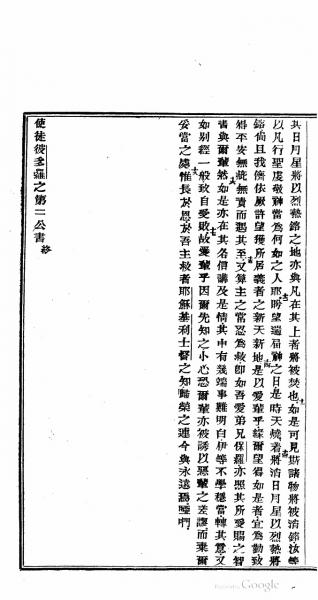 其日月星將以烈熱鎔之地亦與凡在其上者將被焚也如是可見斯諸物將被消鎔汝等
以凡行聖虔敬神當為何如之人耶盼望遄屆神之日是時天燒着將消日月星以烈熱將
鎔尚且我儕依厥許望獲所居義者之新天新地是以愛輩乎緣爾望得如是者宜為勤致
得平安無玷無責而遇其至又算主之當忍為救即如吾愛弟兄保羅亦照其所受賜之智
書與爾輩然如是亦在其各書講及是情其中有幾端事難明白伊等不學穩當轉其意又
如別經一般致自受敗故愛輩乎因爾先知之小心恐爾輩亦被誘以惡輩之差謬而棄爾
妥當之處惟長於恩於吾主救者耶穌基利士督之知歸榮之連今與永遠焉啞們
使徒彼多羅之第二公書終
Google